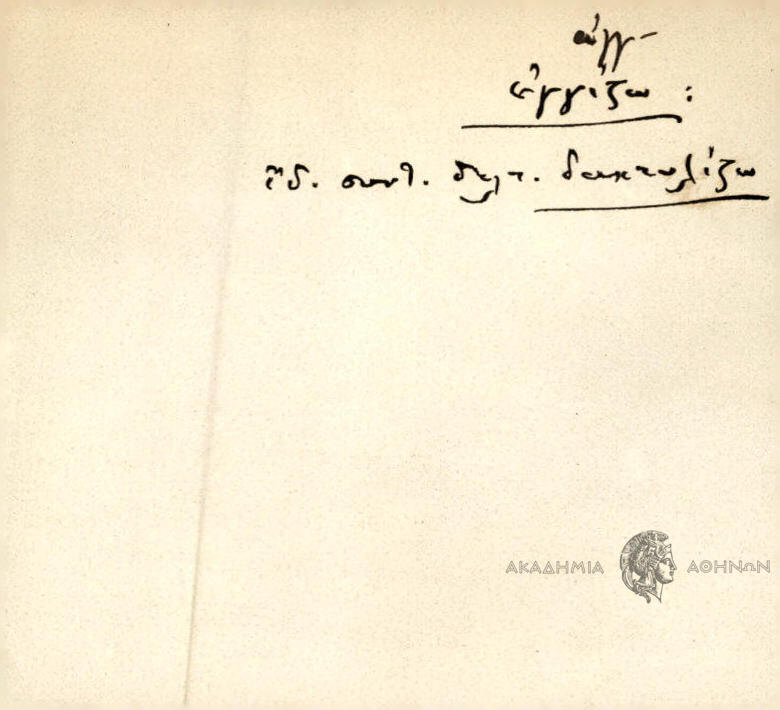 ἀγγ-
ἀγγίζω :
ἰδ. συνθ. δελτ. δακτυλίζω
ΑΚΑΔΗΜΙΑ ΑΘΗΝΩΝ